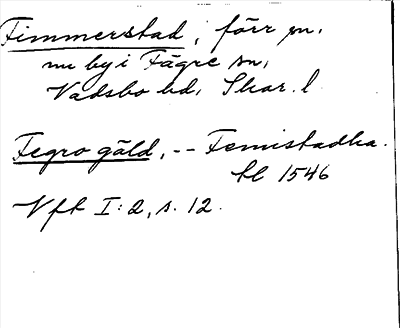 Fimmerstad, förr sn.
nu by i Fägre sn,
Vadsbo hd, Skar. l
Fegro gäld, -- Femistadha.
hl 1546
Vft I:2, s. 12.